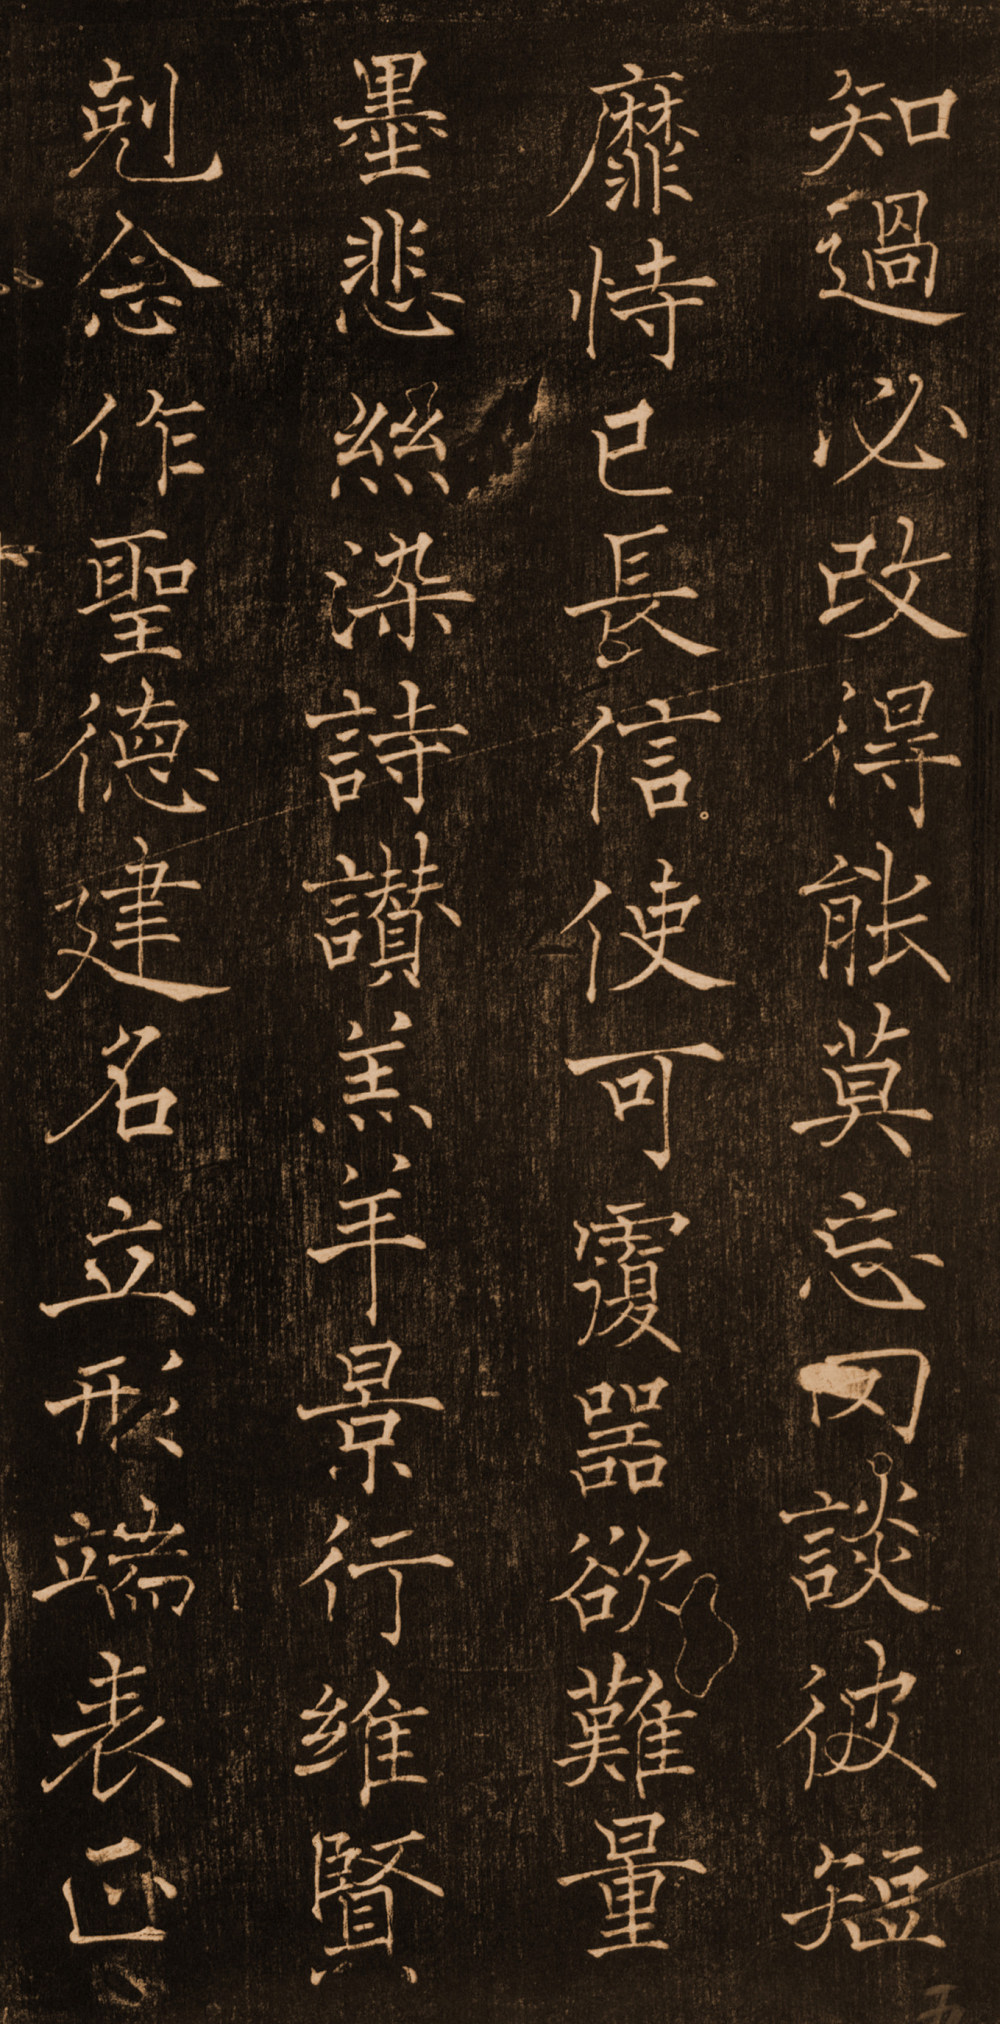 知過必改得能莫忘罔談彼短
靡恃已長信使可覆器欲難量
墨悲絲染詩讃羔羊景行維賢
剋念作聖徳建名立形端表正
五